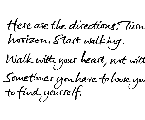 Here are the directions. Turn
horizon. Start walking.
Walk with your heart, not with
Sometimes you have to lose you
to find yourself.